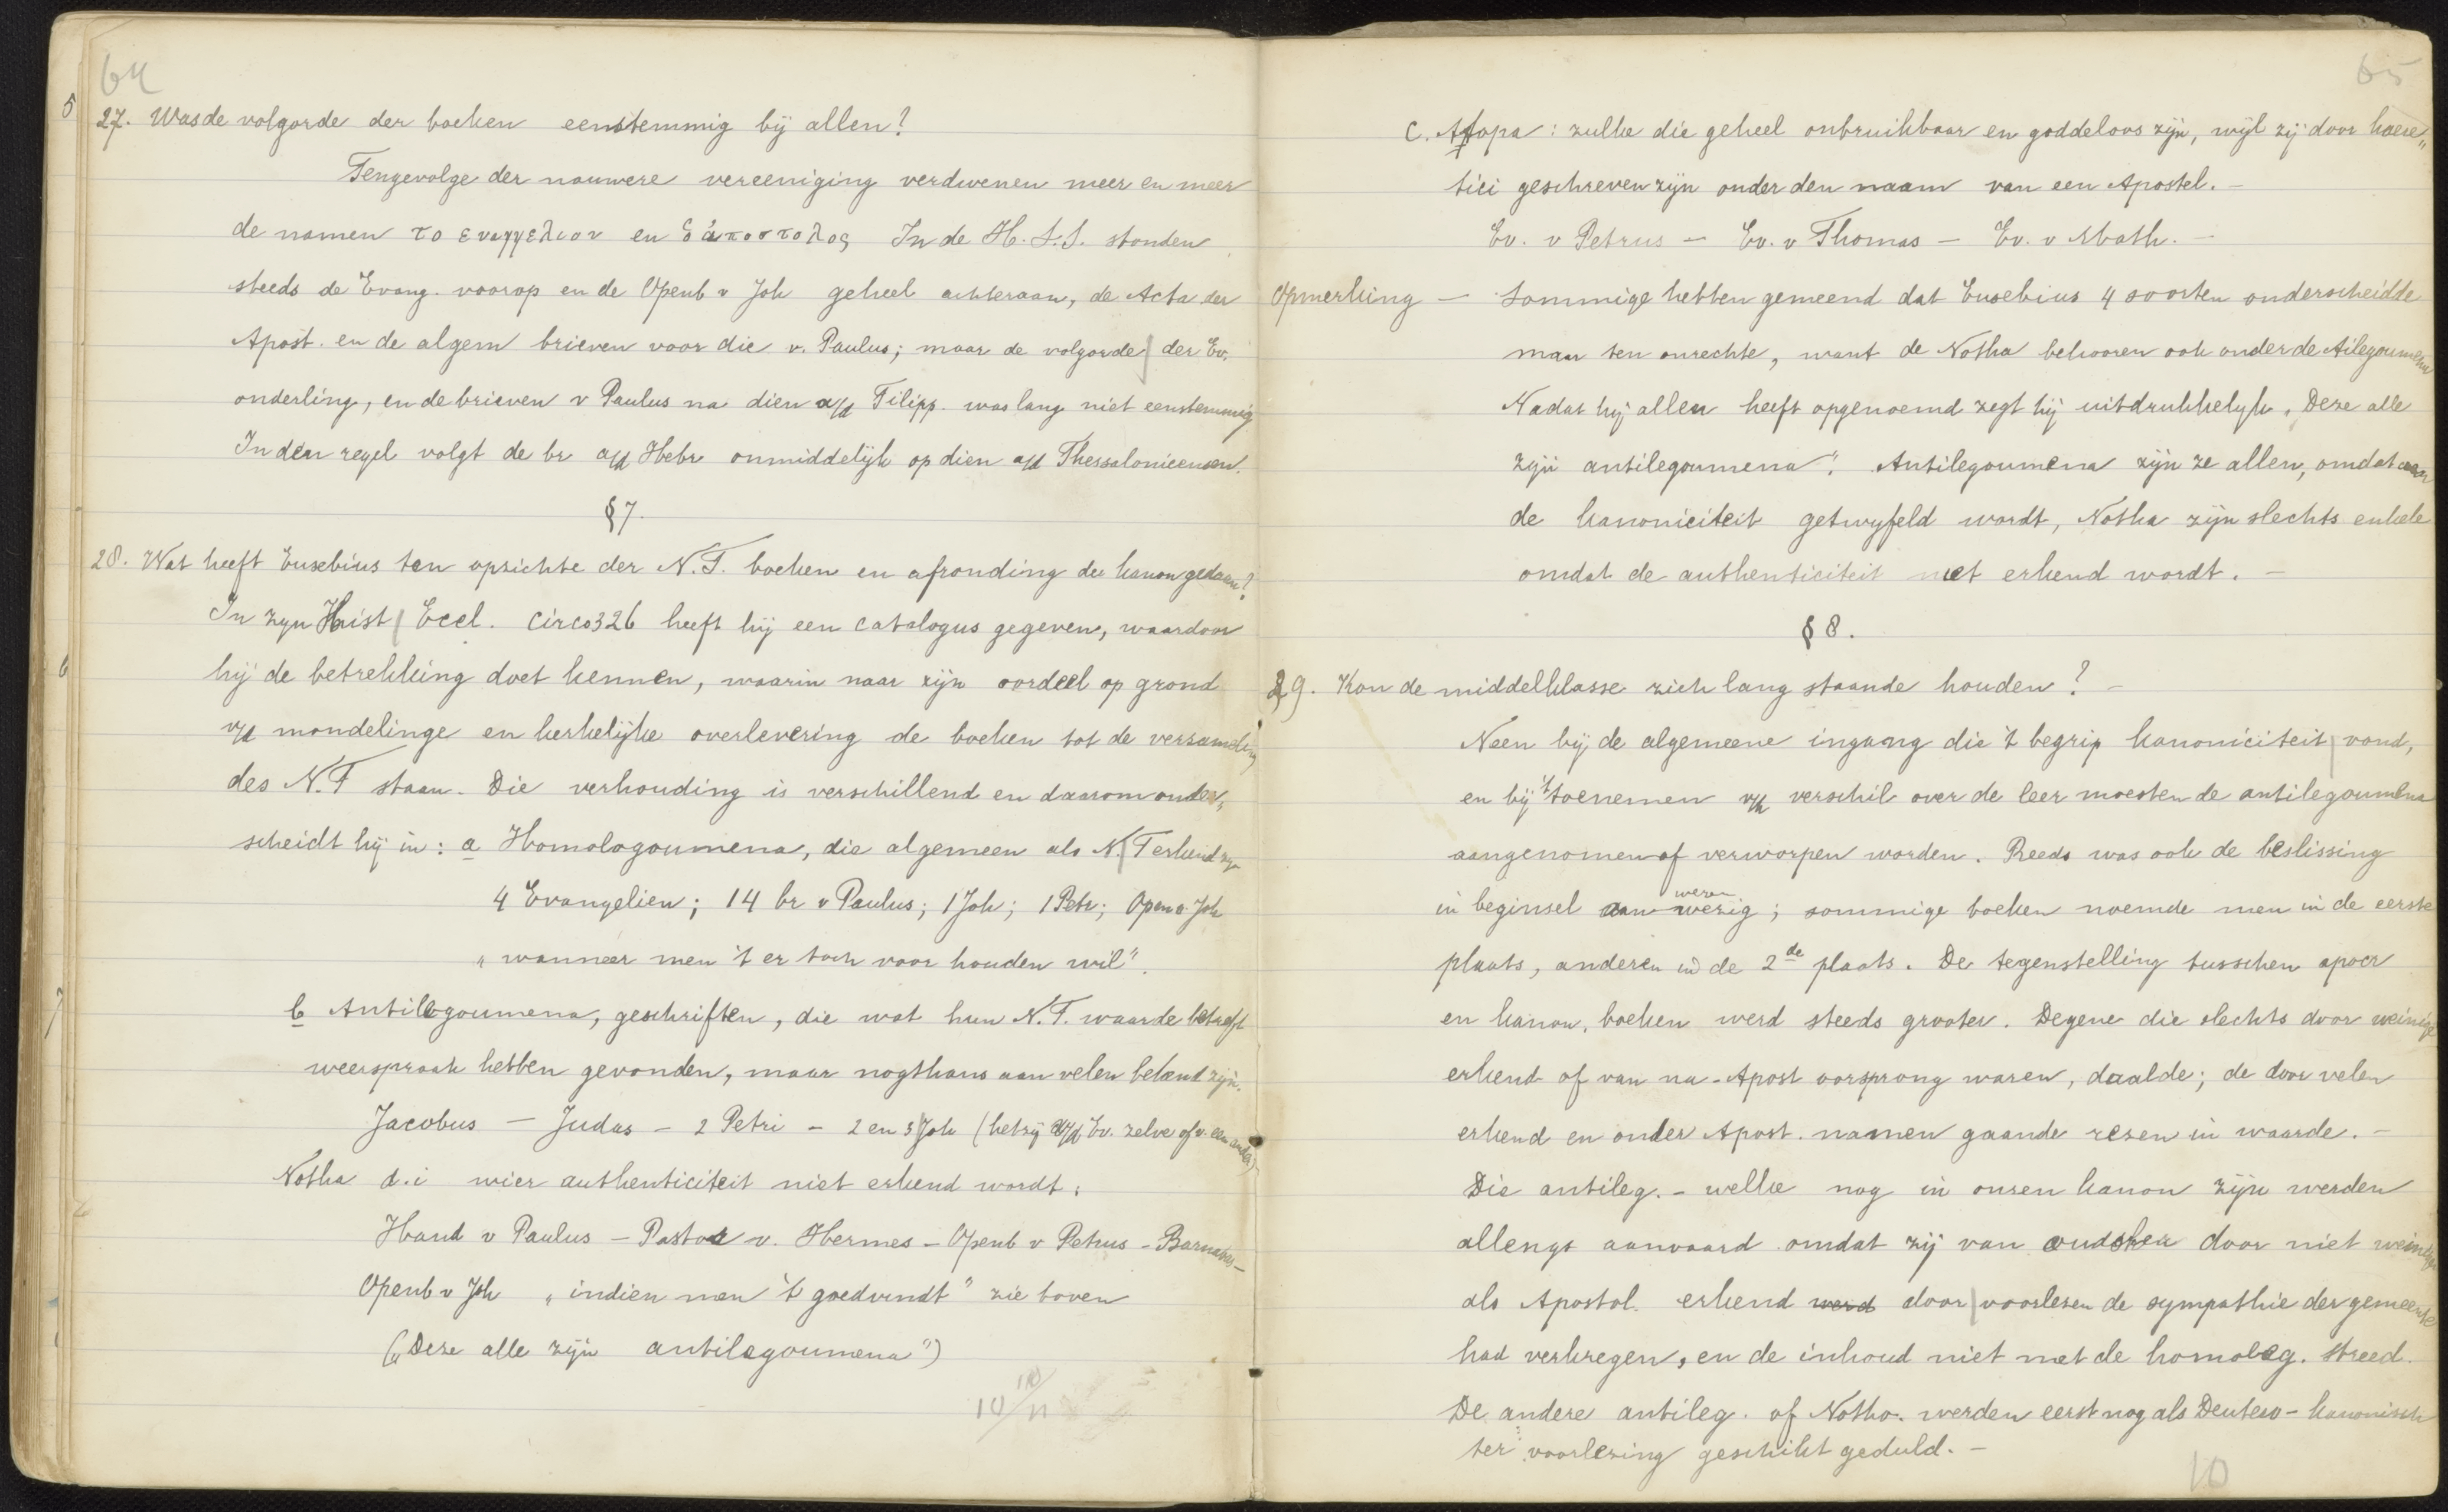 64
5
27. Was de volgorde der boeken eenstemmig bij allen?
Tengevolge der nauwere vereeniging verdwenen meer en meer
de namen το ευαγγελιον en ὁ ἀποστολος In de H.S.S. stonden
steeds de Evang. voorop en de Openb v Joh geheel achteraan, de Acta der
Apost. en de algem brieven voor die v. Paulus; maar de volgorde | der Ev.
onderling, en de brieven v Paulus na dien a/d Filipp. was lang niet eenstemmig
In den regel volgt de br a/d Hebr onmiddelijk op dien a/d Thessalonicensen.
§7.
28. Wat heeft Eusebius ten opzichte der N.T. boeken en afronding der kanon gedaan?
In zyn Hist | Eccl. circa 326 heeft hij een catalogus gegeven, waardoor
6
hij de betrekking doet kennen, waarin naar zijn oordeel op grond
v/d mondelinge en kerkelijke overlevering de boeken tot de verzameling
des N.T staan. Die verhouding is verschillend en daarom onder„
scheidt hij in: a Homologoumena, die algemeen als N.|T erkend zyn
4 Evangelien; 14 br v Paulus; 1 Joh; 1 Petr; Open v Joh
„wanneer men 't er toch voor houden wil".
7
b Antilegoumena, geschriften, die wat hun N.T. waarde betreft
weerspraak hebben gevonden, maar nogthans aan velen bekend zijn.
Jacobus — Judas — 2 Petri — 2 en 3 Joh (hetzij v/d Ev. zelve of v. een ander) —
Notha d.i wier authenticiteit niet erkend wordt:
Hand v Paulus — Pastor v. Hermes — Openb v Petrus — Barnabas —
Openb v Joh „indien men 't goedvindt" zie boven
(„Deze alle zijn antilegoumena")
10/11
65
C. Atopa: zulke die geheel onbruikbaar en goddeloos zijn, wijl zij door haere„
tici geschreven zijn onder den naam van een Apostel. —
Ev. v Petrus — Ev. v Thomas — Ev. v Math. —
Opmerking — Sommige hebben gemeend dat Eusebius 4 soorten onderscheidde
maar ten onrechte, want de Notha behooren ook onder de Atilegoumena
Nadat hij allen heeft opgenoemd zegt hij uitdrukkelyk „Deze alle
zijn antilegoumena". Antilegoumena zijn ze allen, omdat aan
de kanoniciteit getwyfeld wordt, Notha zijn slechts enkele
omdat de authenticiteit niet erkend wordt. —
§ 8.
29. Kon de middelklasse zich lang staande houden? —
Neen bij de algemeene ingang die 't begrip kanoniciteit | vond,
en bij 't toenemen v/h verschil over de leer moesten de antilegoumena
aangenomen of verworpen worden. Reeds was ook de beslissing
in beginsel aanwezig; sommige boeken noemde men in de eerste
plaats, anderen in de 2de plaats. De tegenstelling tusschen apocr
en kanon. boeken werd steeds grooter. Degene die slechts door weinige
erkend of van na-Apost oorsprong waren, daalde; de door velen
erkend en onder Apost. namen gaande rezen in waarde. —
Die antileg. — welke nog in onzen kanon zijn werden
allengs aanvaard omdat zij van oudsher door niet weinigen
als Apostol. erkend werd door | voorlezen de sympathie der gemeente
had verkregen, en de inhoud niet met de homoleg. streed.
De andere antileg. of Notha. werden eerst nog als Deutero-kanonisch
ter voorlezing geschikt geduld. —
10